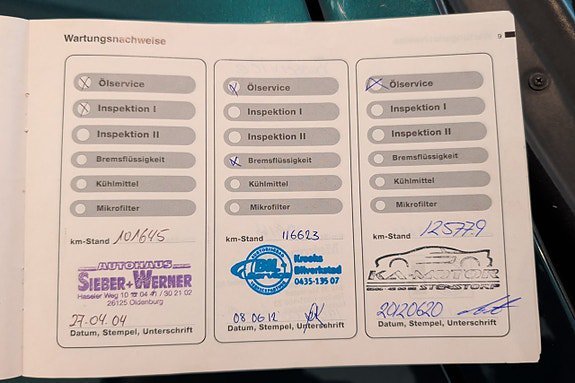 Wartungsnachweise
9
Ölservice
Inspektion I
Inspektion II
Bremsflüssigkeit
Kühlmittel
Mikrofilter
km-Stand 101645
AUTOHAUS
SIEBER+WERNER
Haseler Weg 10 ☎ 04 41 / 30 21 02
26125 Oldenburg
27.04.04
Datum, Stempel, Unterschrift
Ölservice
Inspektion I
Inspektion II
Bremsflüssigkeit
Kühlmittel
Mikrofilter
km-Stand 116623
Kracks
Bilverkstad
0435-135 07
08 06 12
Datum, Stempel, Unterschrift
Ölservice
Inspektion I
Inspektion II
Bremsflüssigkeit
Kühlmittel
Mikrofilter
km-Stand 125779
KA-MOTOR
20120620
Datum, Stempel, Unterschrift